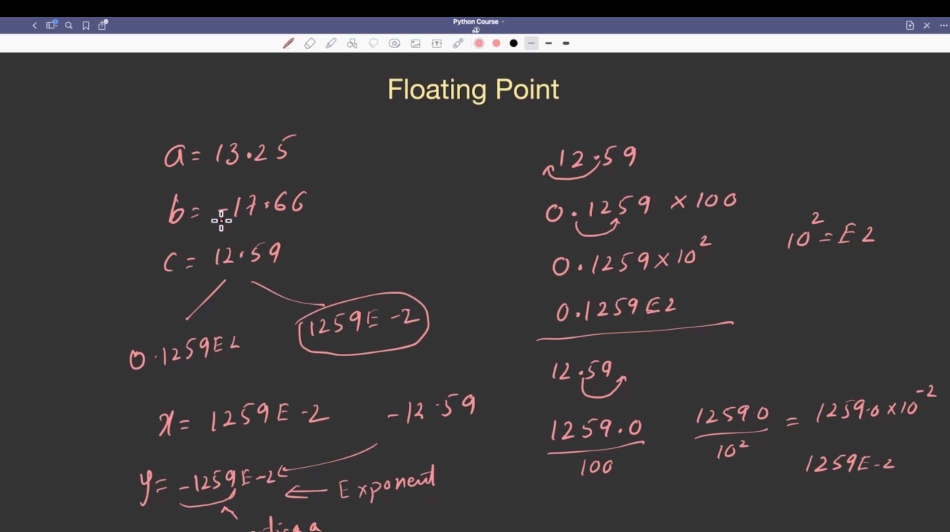 Python Course
Floating Point
a = 13.25
b = -17.66
c = 12.59
0.1259E2
1259E-2
x = 1259E-2
-12.59
y = -1259E-2
Exponent
12.59
0.1259 × 100
0.1259 × 10^2
0.1259E2
10^2 = E2
12.59
1259.0
100
1259.0
10^2
= 1259.0 × 10^-2
1259E-2